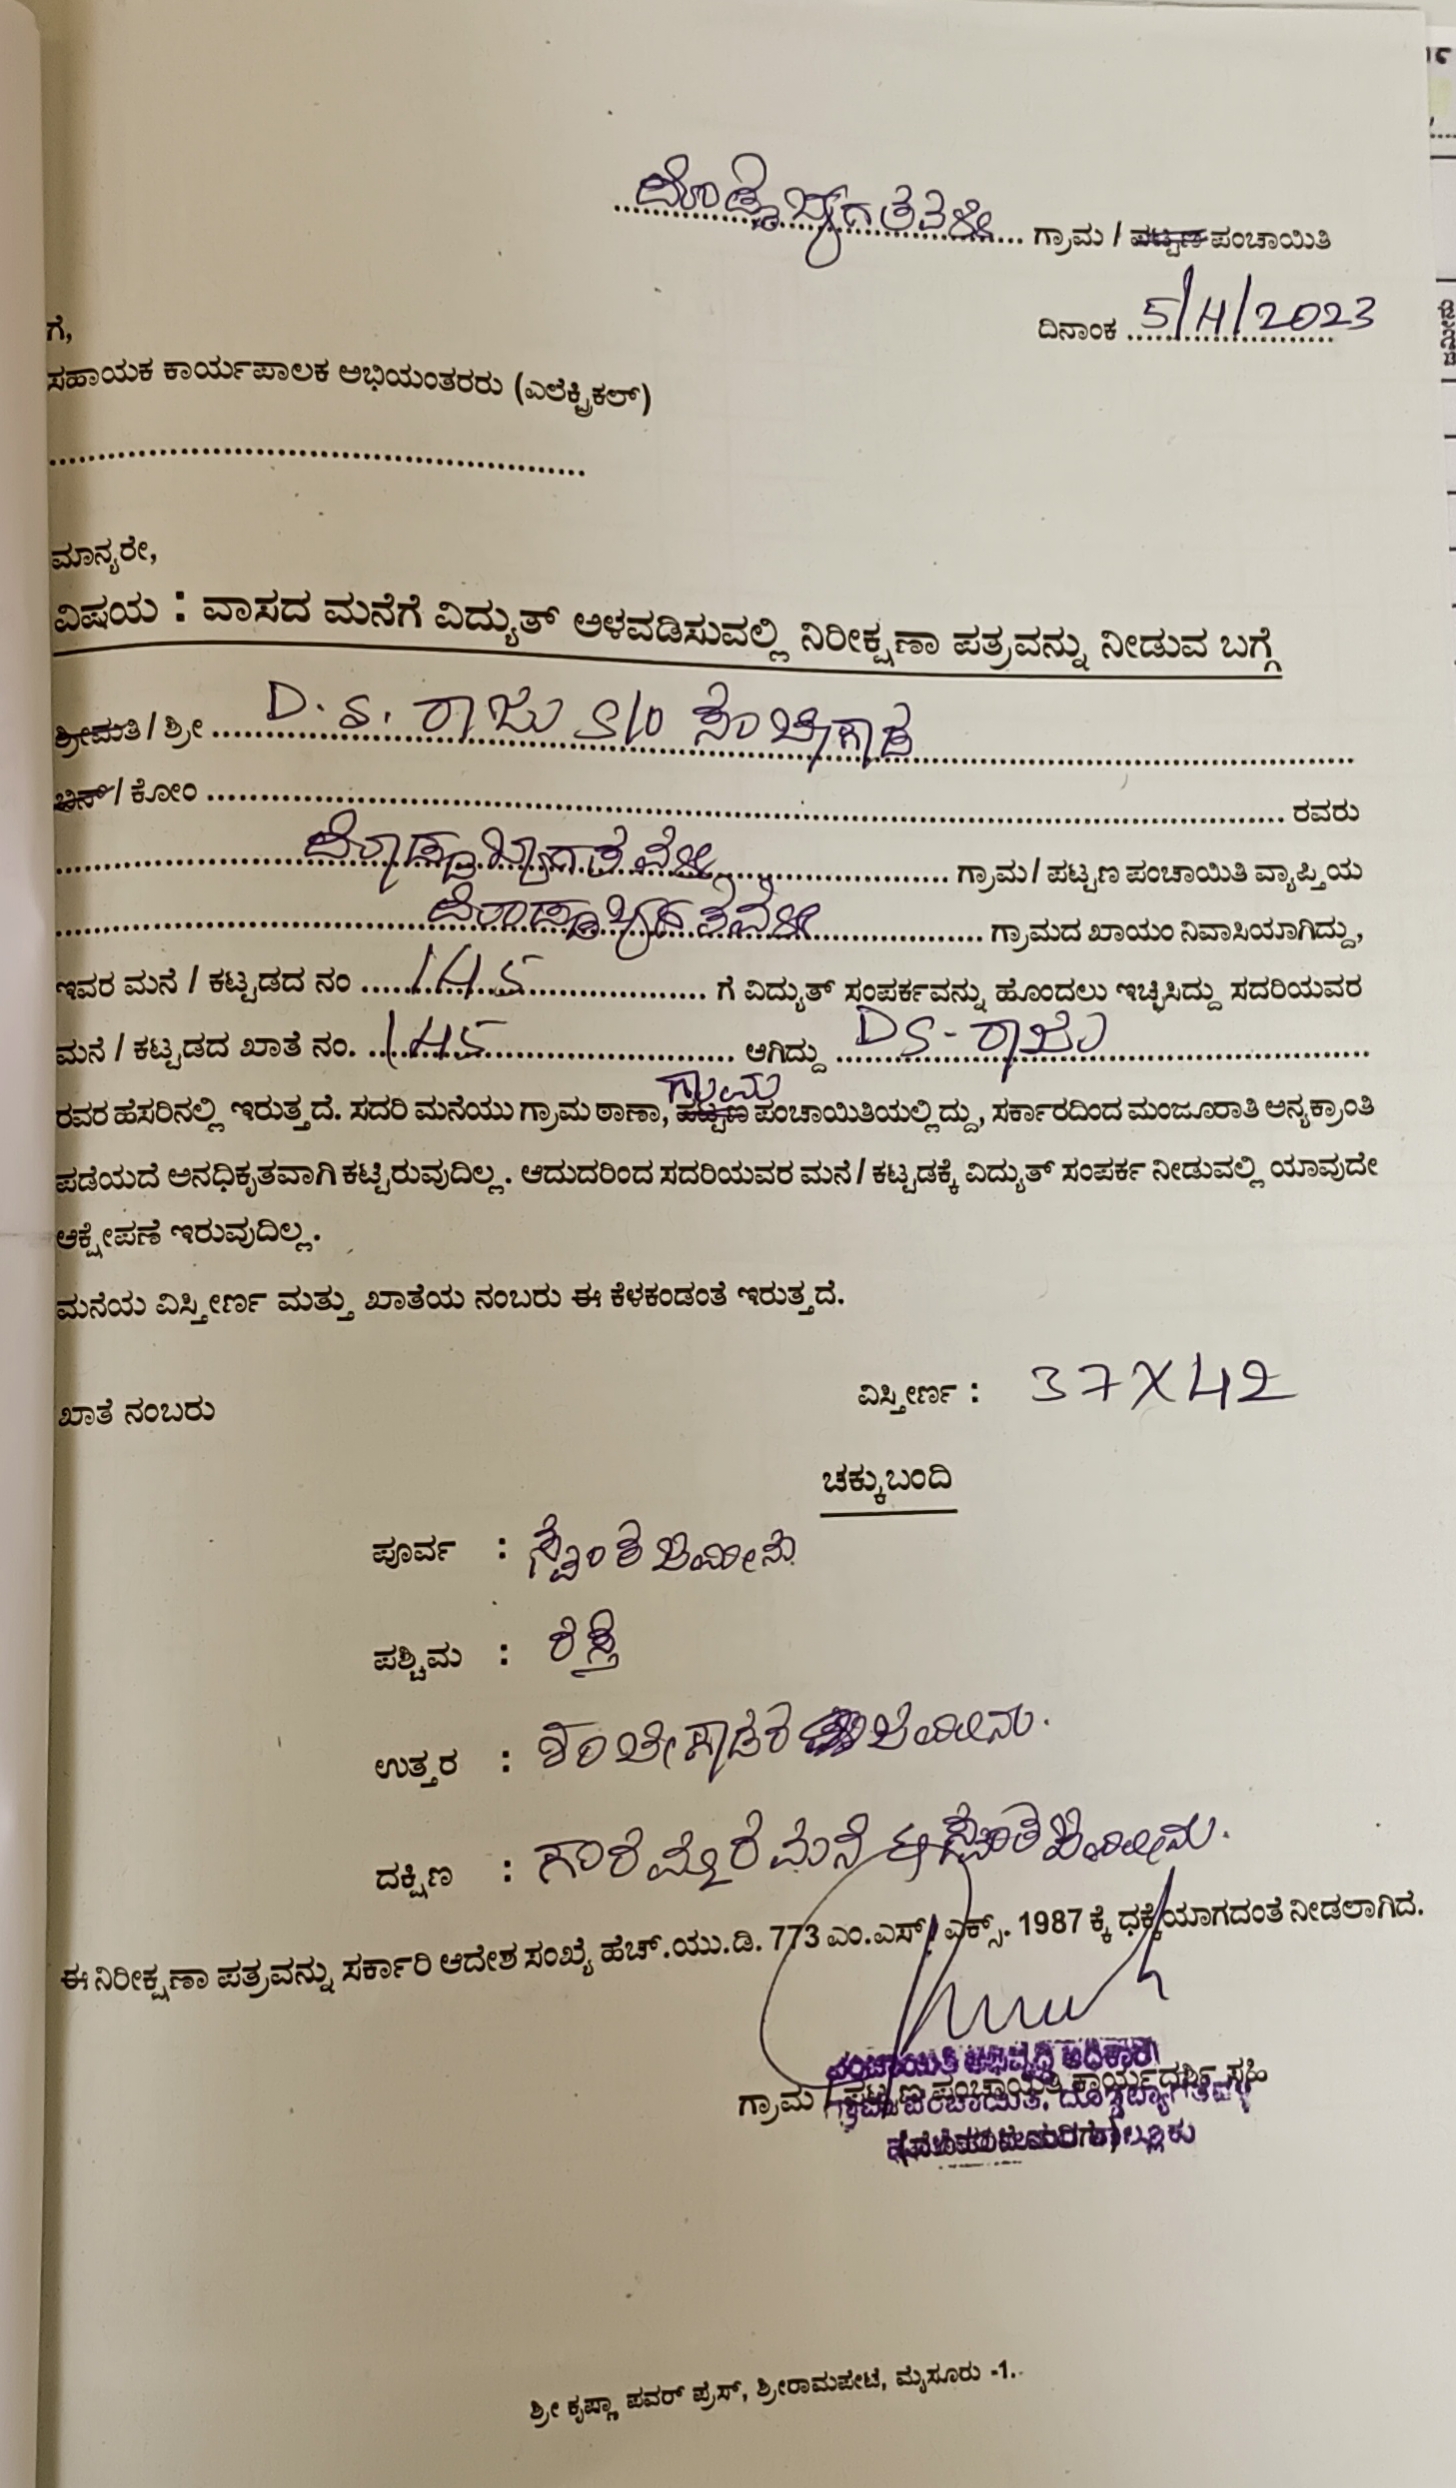 ದೊಡ್ಡಬ್ಯಾಗತವಳ್ಳಿ ಗ್ರಾಮ / ಪಟ್ಟಣ ಪಂಚಾಯಿತಿ
ದಿನಾಂಕ 5/4/2023
ಗೆ,
ಸಹಾಯಕ ಕಾರ್ಯಪಾಲಕ ಅಭಿಯಂತರರು (ಎಲೆಕ್ಟ್ರಿಕಲ್)
ಮಾನ್ಯರೇ,
ವಿಷಯ : ವಾಸದ ಮನೆಗೆ ವಿದ್ಯುತ್ ಅಳವಡಿಸುವಲ್ಲಿ ನಿರೀಕ್ಷಣಾ ಪತ್ರವನ್ನು ನೀಡುವ ಬಗ್ಗೆ
ಶ್ರೀಮತಿ / ಶ್ರೀ D. S. ರಾಜು S/o
ಬಿನ್ / ಕೋಂ ರವರು
ದೊಡ್ಡಬ್ಯಾಗತವಳ್ಳಿ ಗ್ರಾಮ / ಪಟ್ಟಣ ಪಂಚಾಯಿತಿ ವ್ಯಾಪ್ತಿಯ
ದೊಡ್ಡಬ್ಯಾಗತವಳ್ಳಿ ಗ್ರಾಮದ ಖಾಯಂ ನಿವಾಸಿಯಾಗಿದ್ದು,
ಇವರ ಮನೆ / ಕಟ್ಟಡದ ನಂ 145 ಗೆ ವಿದ್ಯುತ್ ಸಂಪರ್ಕವನ್ನು ಹೊಂದಲು ಇಚ್ಛಿಸಿದ್ದು ಸದರಿಯವರ
ಮನೆ / ಕಟ್ಟಡದ ಖಾತೆ ನಂ. 145 ಆಗಿದ್ದು DS-ರಾಜು
ಗ್ರಾಮ
ರವರ ಹೆಸರಿನಲ್ಲಿ ಇರುತ್ತದೆ. ಸದರಿ ಮನೆಯು ಗ್ರಾಮ ಠಾಣಾ, ಪಟ್ಟಣ ಪಂಚಾಯಿತಿಯಲ್ಲಿದ್ದು, ಸರ್ಕಾರದಿಂದ ಮಂಜೂರಾತಿ ಅನ್ಯಕ್ರಾಂತಿ
ಪಡೆಯದೆ ಅನಧಿಕೃತವಾಗಿ ಕಟ್ಟಿರುವುದಿಲ್ಲ. ಆದುದರಿಂದ ಸದರಿಯವರ ಮನೆ / ಕಟ್ಟಡಕ್ಕೆ ವಿದ್ಯುತ್ ಸಂಪರ್ಕ ನೀಡುವಲ್ಲಿ ಯಾವುದೇ
ಆಕ್ಷೇಪಣೆ ಇರುವುದಿಲ್ಲ.
ಮನೆಯ ವಿಸ್ತೀರ್ಣ ಮತ್ತು ಖಾತೆಯ ನಂಬರು ಈ ಕೆಳಕಂಡಂತೆ ಇರುತ್ತದೆ.
ಖಾತೆ ನಂಬರು ವಿಸ್ತೀರ್ಣ : 37X42
ಚಕ್ಕುಬಂದಿ
ಪೂರ್ವ : ಸ್ವಂತ ಜಮೀನು
ಪಶ್ಚಿಮ : ರಸ್ತೆ
ಉತ್ತರ : ಜಮೀನು.
ದಕ್ಷಿಣ : ಮನೆ ಈ ಸ್ವಂತ ಜಮೀನು.
ಈ ನಿರೀಕ್ಷಣಾ ಪತ್ರವನ್ನು ಸರ್ಕಾರಿ ಆದೇಶ ಸಂಖ್ಯೆ ಹೆಚ್.ಯು.ಡಿ. 773 ಎಂ.ಎಸ್. ಎಕ್ಸ್. 1987 ಕ್ಕೆ ಧಕ್ಕೆಯಾಗದಂತೆ ನೀಡಲಾಗಿದೆ.
ಪಂಚಾಯಿತಿ ಅಭಿವೃದ್ಧಿ ಅಧಿಕಾರಿ
ಗ್ರಾಮ / ಪಟ್ಟಣ ಪಂಚಾಯಿತಿ ಕಾರ್ಯದರ್ಶಿ ಸಹಿ
ಗ್ರಾಮ ಪಂಚಾಯಿತಿ, ದೊಡ್ಡಬ್ಯಾಗತವಳ್ಳಿ
ತಾಲ್ಲೂಕು
ಶ್ರೀ ಕೃಷ್ಣಾ ಪವರ್ ಪ್ರೆಸ್, ಶ್ರೀರಾಮಪೇಟೆ, ಮೈಸೂರು -1.